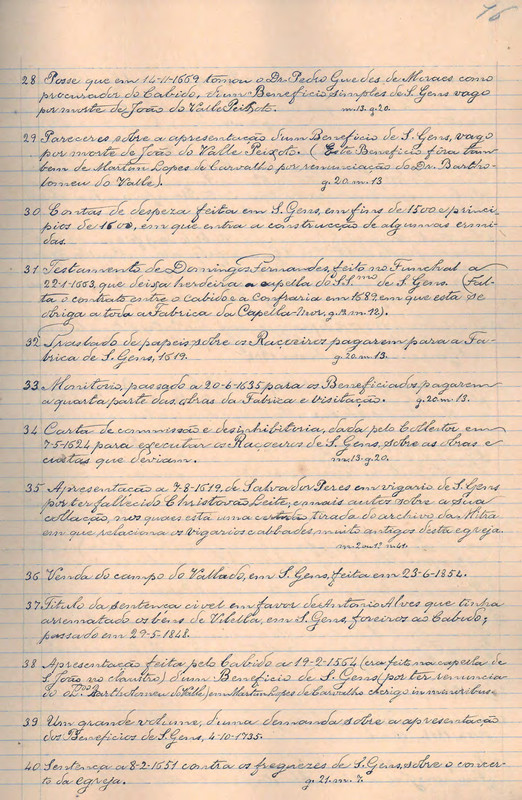 76
28 Posse que em 14-11-1669 tomou o Dr. Pedro Guedes de Moraes como
procurador do Cabido, d'um Beneficio simples de S. Gens vago
por morte de João do Valle Peixoto. m. 13. g. 20.
29 Pareceres sobre a apresentação d'um Beneficio de S. Gens, vago
por morte de João do Valle Peixoto. (Este Beneficio fôra tam-
bem de Martim Lopes de Carvalho por renunciação do Dr. Bartho-
lomeu do Valle). g. 20. m. 13
30 Contas de despeza feita em S. Gens, em fins de 1500 e princi-
pios de 1600, em que entra a construcção de algumas ermi-
das.
31 Testamento de Domingos Fernandes, feito no Funchal a
22-1-1663, que deixa herdeira a capella do SS.mo de S. Gens. (Fal-
ta o contrato entre o cabido e a confraria em 1689, em que esta se
obriga a toda a Fabrica da Capella-mor, g. 12. m. 12).
32 Traslado de papeis sobre os Raçoeiros pagarem para a Fa-
brica de S. Gens, 1619. g. 20. m. 13.
33 Monitorio, passado a 20-6-1635 para os Beneficiados pagarem
a quarta parte das obras da Fabrica e Visitação. g. 20. m. 13.
34 Carta de commissão e desinhibitoria, dada pelo Collector em
7-5-1624 para executar os Raçoeiros de S. Gens, sobre as obras e
custas que deviam. m. 13. g. 20.
35 Apresentação a 7-8-1619, de Salvador Peres em vigario de S. Gens
por ter fallecido Christovão Leite, e mais autos sobre a sua
collação, nos quaes está uma tirada do archivo da Mitra
em que relaciona os vigarios e abbades muito antigos desta egreja.
36 Venda do campo do Vallado, em S. Gens, feita em 23-6-1854.
37 Titulo da sentença civel em favor de Antonio Alves que tinha
arrematado os bens de Vilella, em S. Gens, foreiros ao Cabido;
passado em 29-5-1848.
38 Apresentação feita pelo Cabido a 19-2-1564 (era feita na capella de
S. João no claustro) d'um Beneficio de S. Gens (por ter renuncia-
do o Dr. Bartholomeu do Valle) em Martim Lopes de Carvalho clerigo in minoribus.
39 Um grande volume, d'uma demanda sobre a apresentação
dos Beneficios de S. Gens, 4-10-1735.
40 Sentença a 8-2-1651 contra os freguezes de S. Gens, sobre o concer-
to da egreja. g. 21. m. 7.